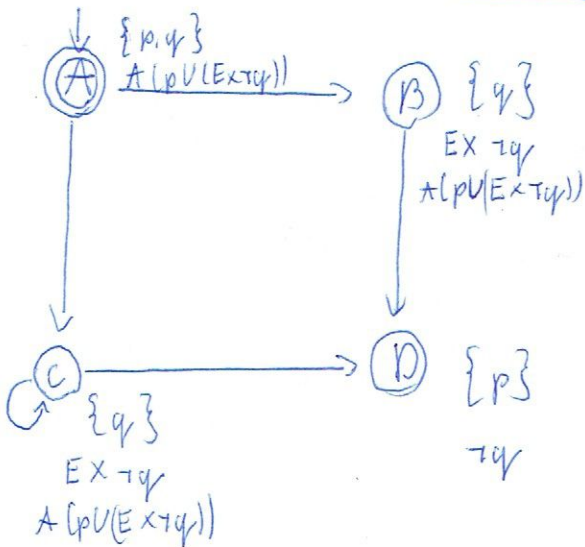 {p,q}
A
A(pU(EX¬q))
B
{q}
EX ¬q
A(pU(EX¬q))
C
{q}
EX ¬q
A(pU(EX¬q))
D
{p}
¬q